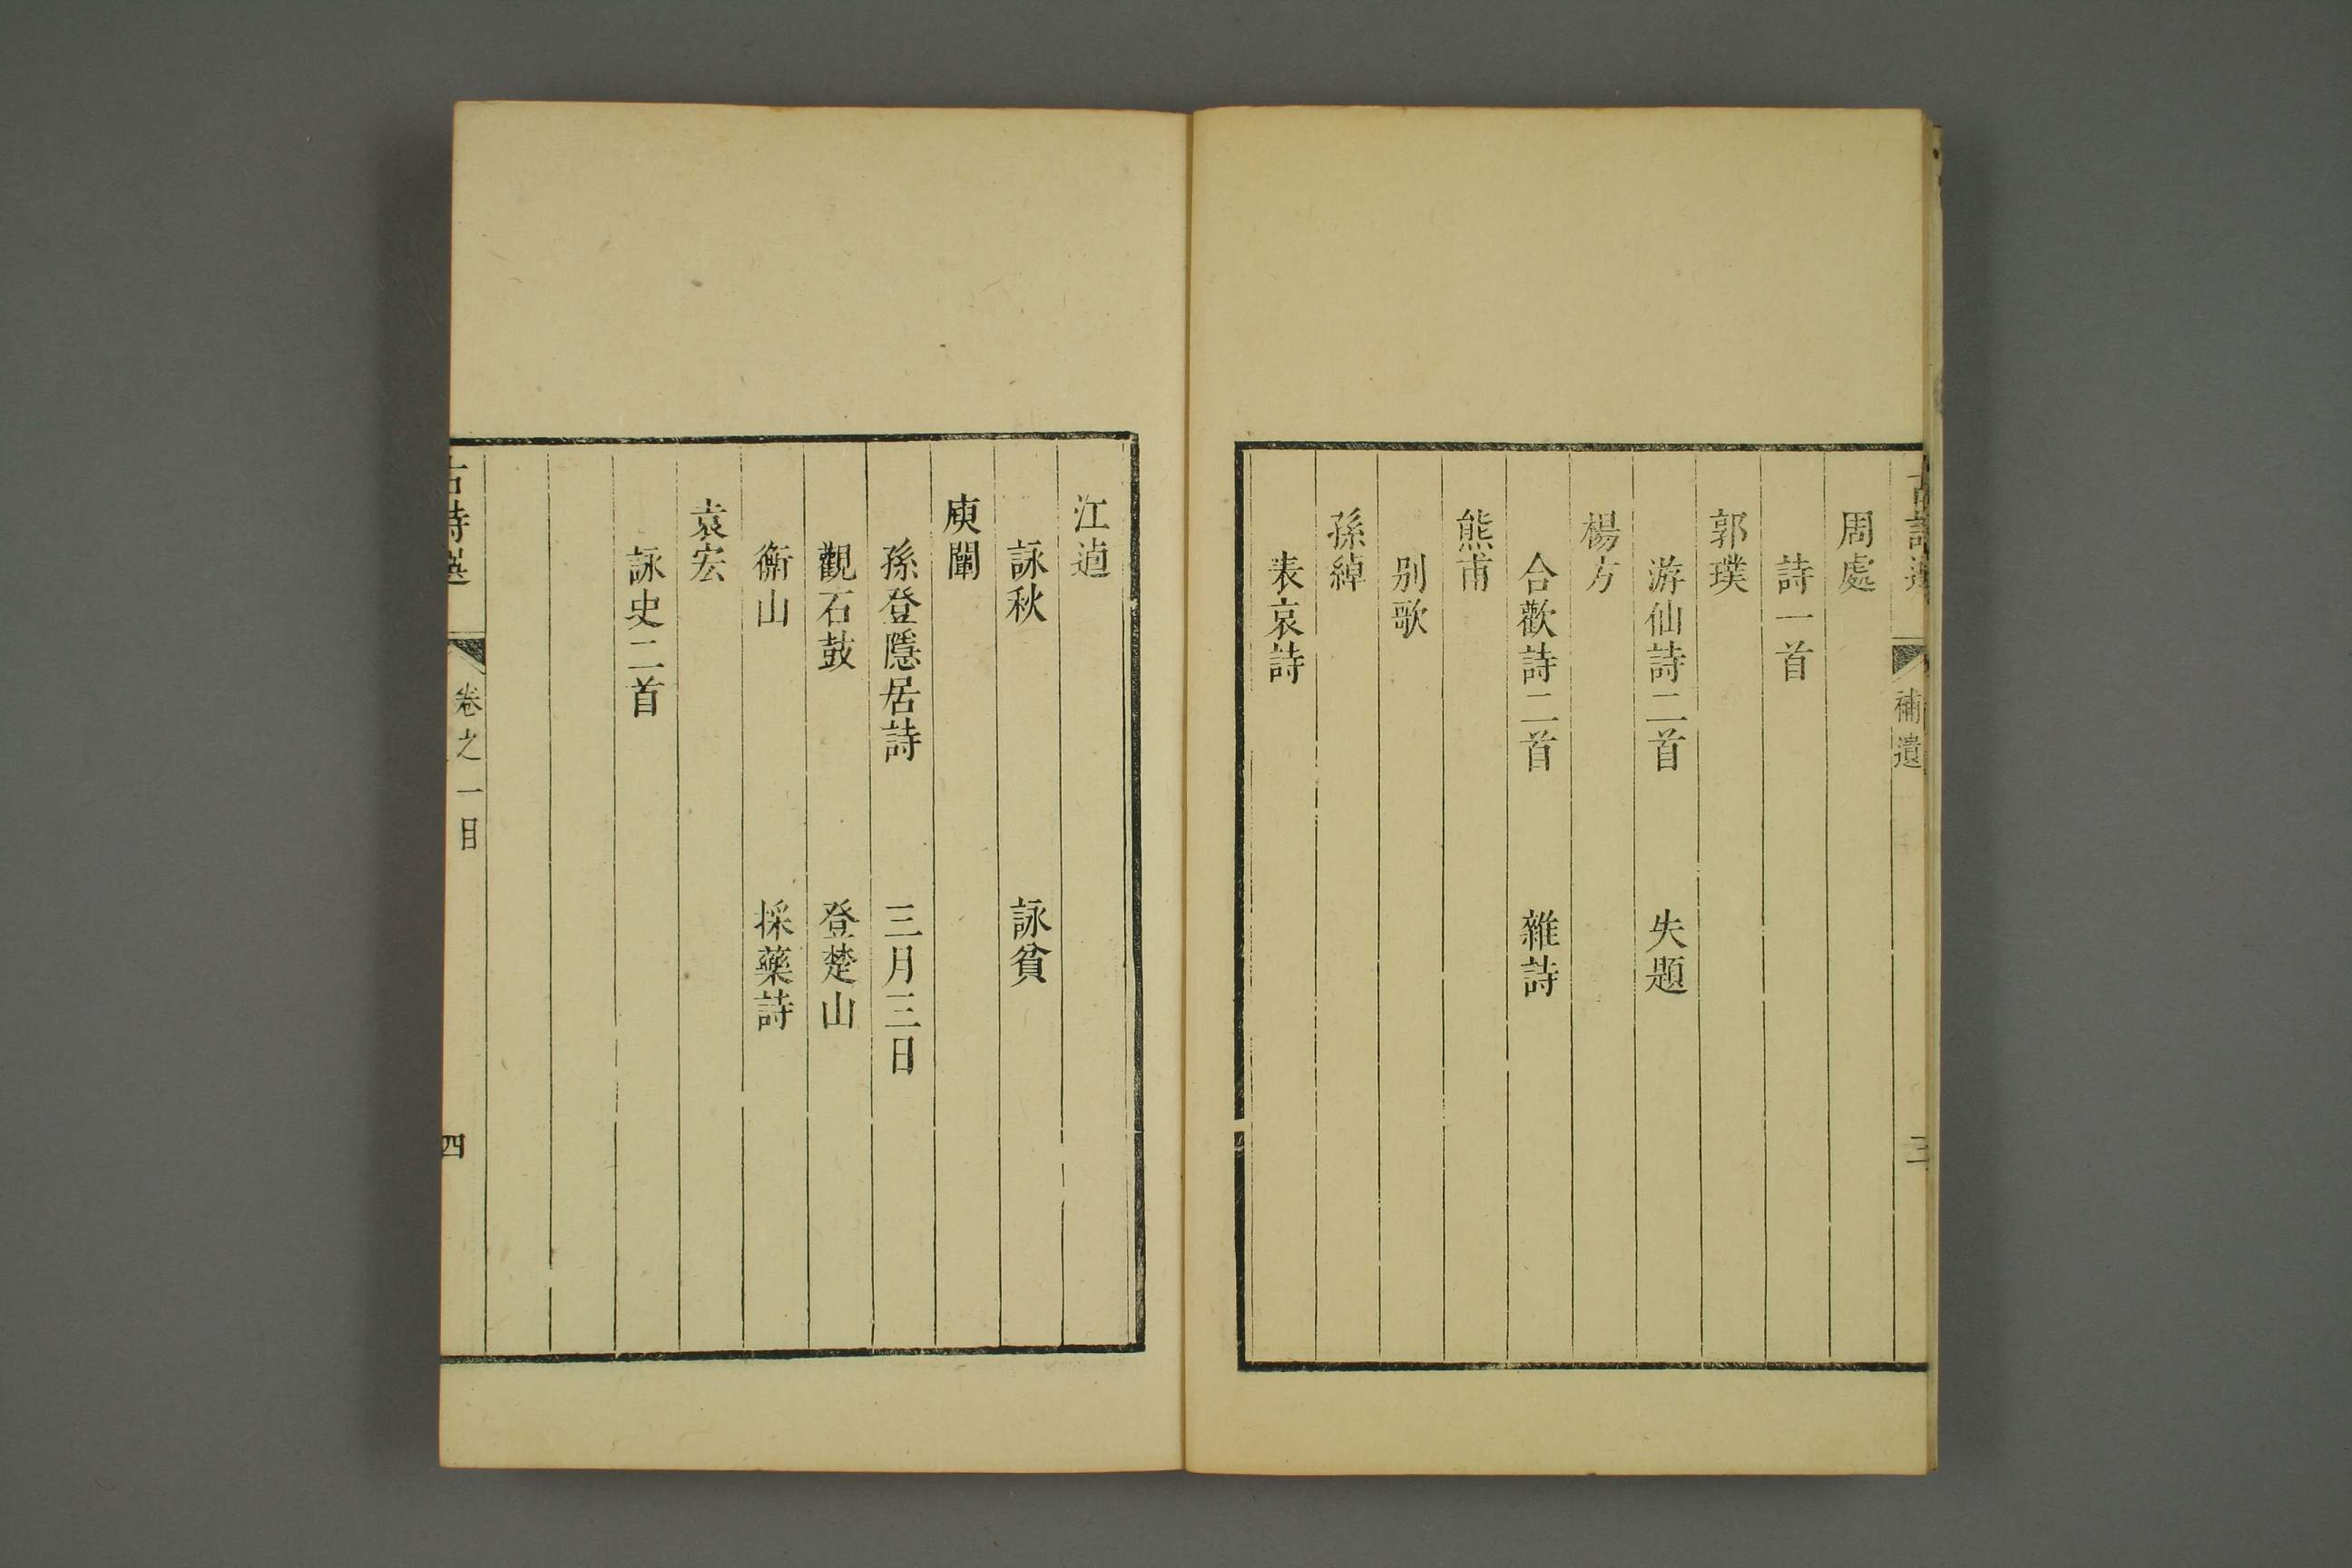 古詩選
補遺
三
周處
詩一首
郭璞
游仙詩二首　失題
楊方
合歡詩二首　雜詩
熊甫
別歌
孫綽
表哀詩
江逌
詠秋　詠貧
庾闡
孫登隱居詩　三月三日
觀石鼓　登楚山
衡山　採藥詩
袁宏
詠史二首
古詩選
卷之一目
四